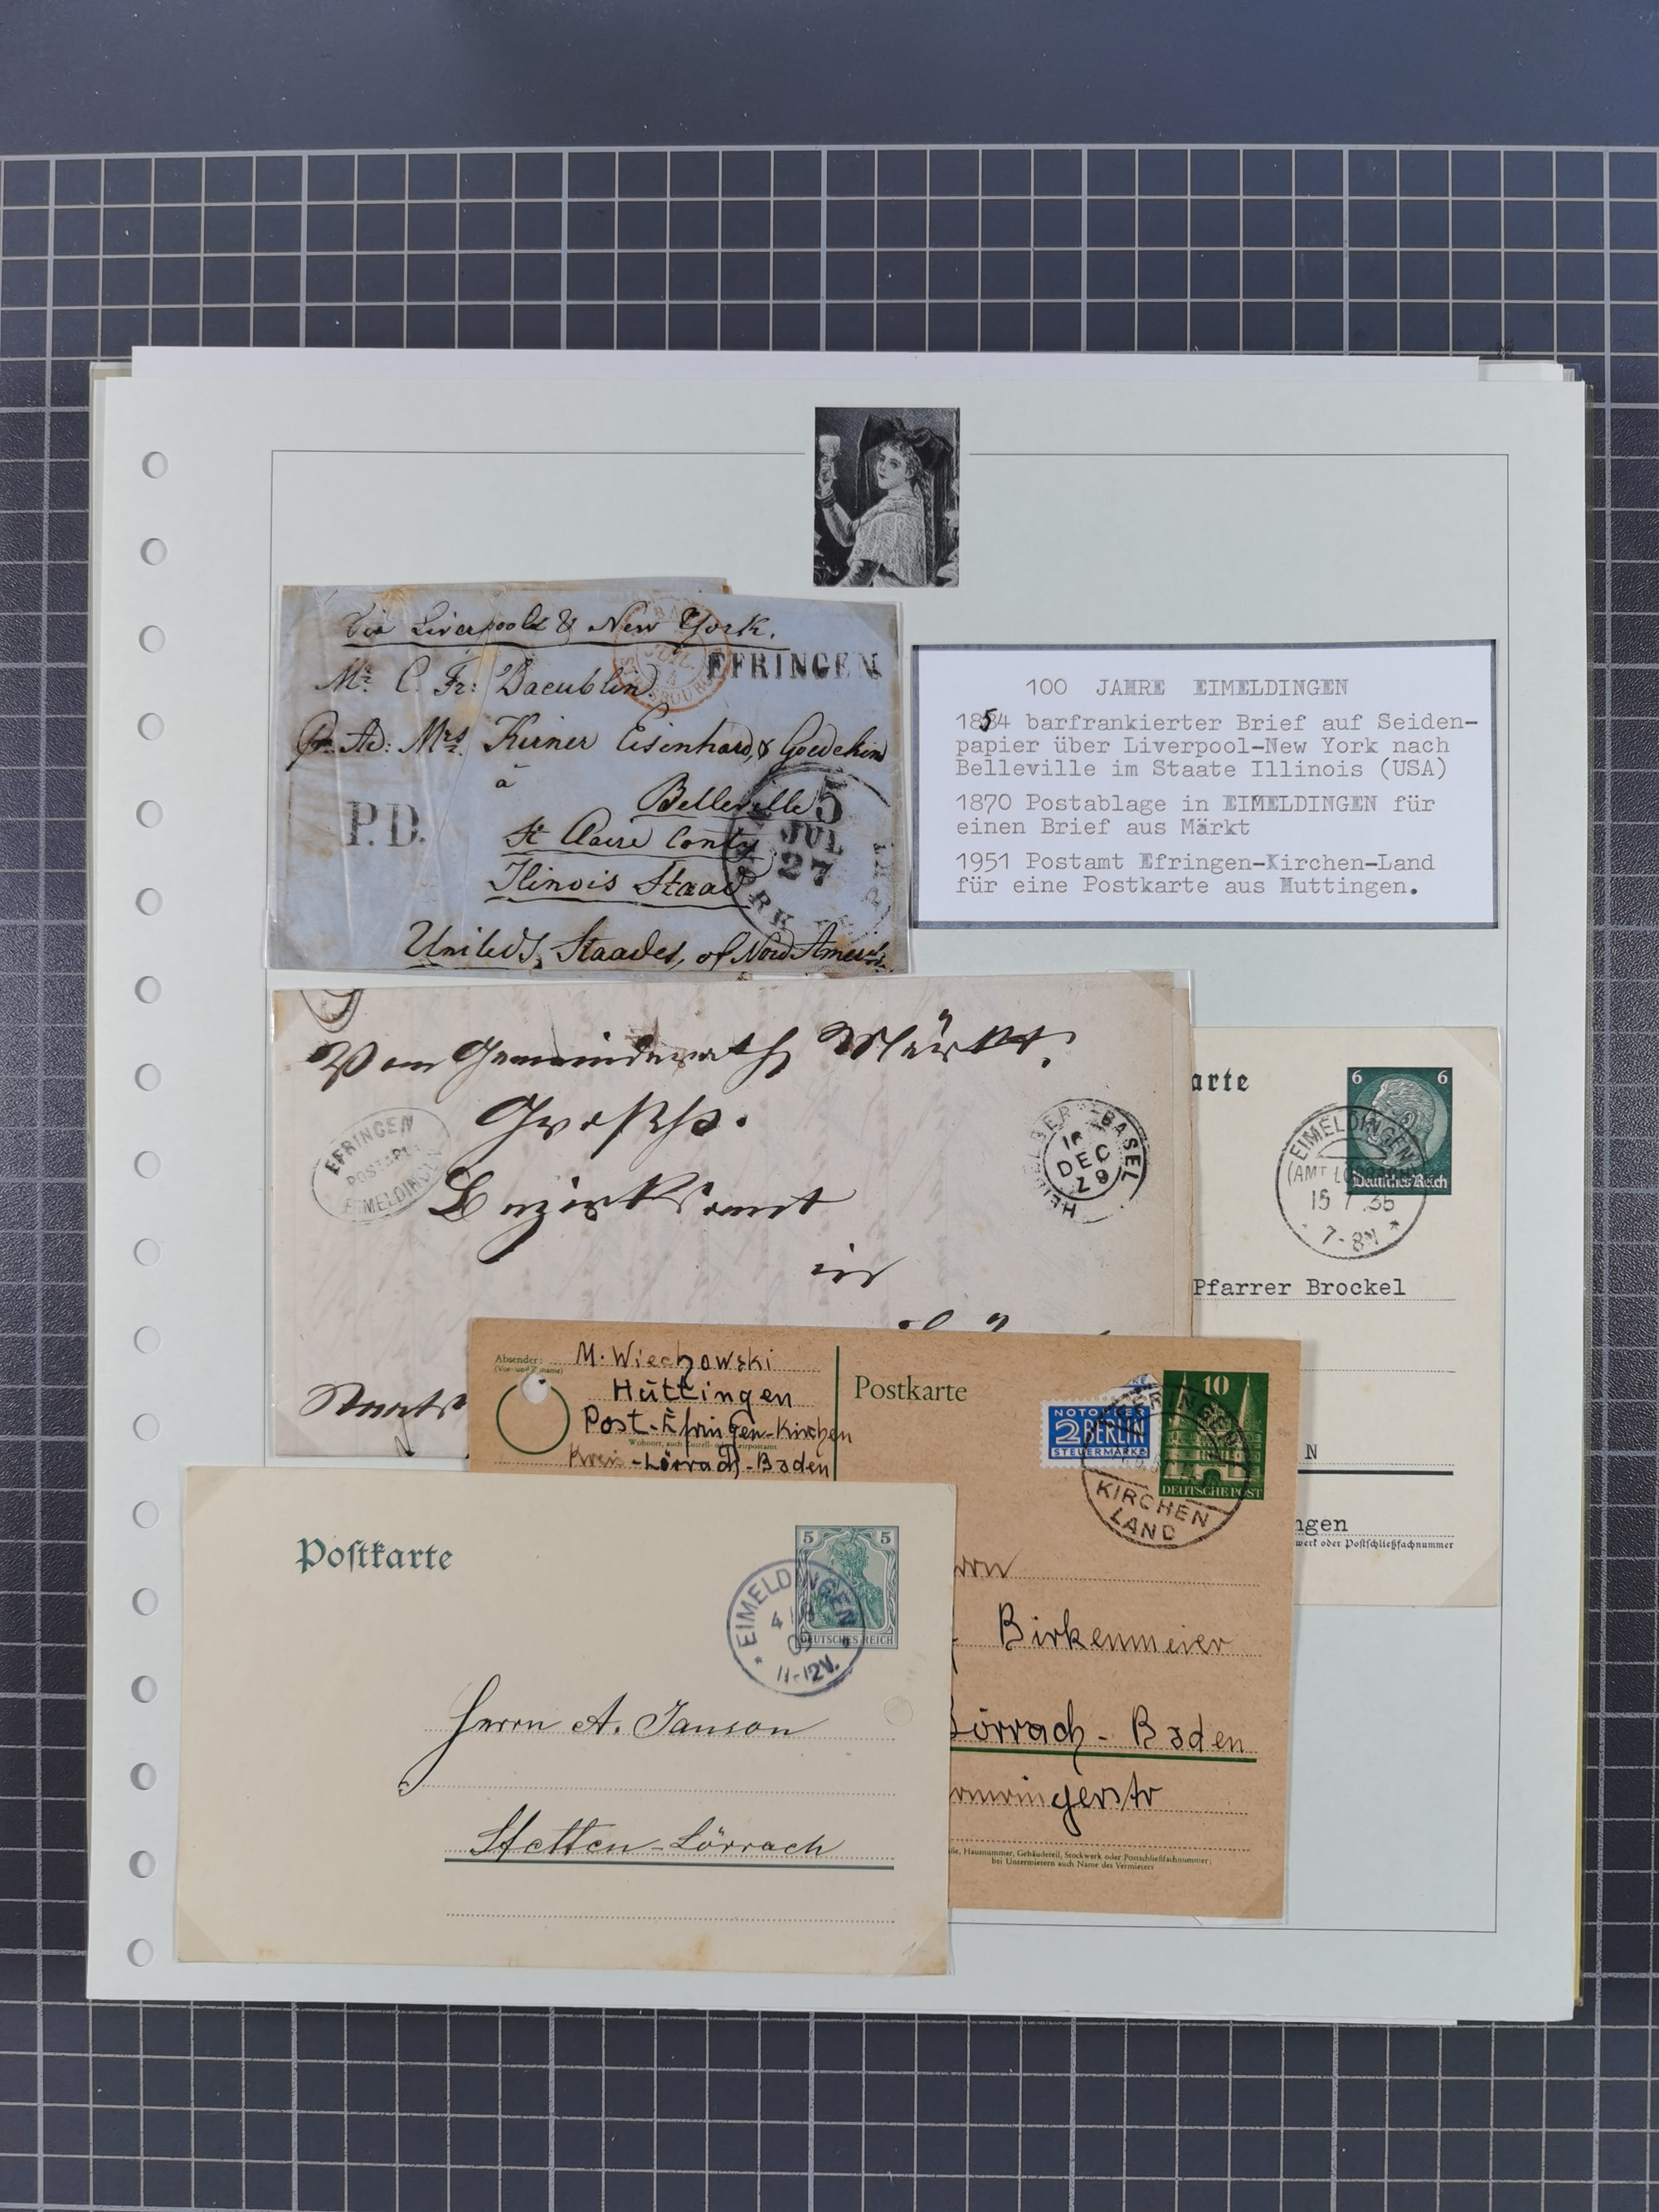 Via Liverpool & New York.
EFRINGEN
Mr. C. Fr: Daeublin
Pr. Ad: Mrs. Kirner Eisenhard, & Goedeking
à
Belleville
P.D.
St Claire Conty
Ilinois Staad
Uniteds, Staades, of Nord America
5
JUL
27
100 JAHRE EIMELDINGEN
1854 barfrankierter Brief auf Seiden-
papier über Liverpool-New York nach
Belleville im Staate Illinois (USA)
1870 Postablage in EIMELDINGEN für
einen Brief aus Märkt
1951 Postamt Efringen-Kirchen-Land
für eine Postkarte aus Huttingen.
Vom Gemeinderath Märkt.
Großh.
Bezirksamt
in
EFRINGEN
POSTABL.
EIMELDINGEN
HEIDELBERG-BASEL
16
DEC
Z 9
arte
6 6
Deutsches Reich
EIMELDINGEN
(AMT LÖRRACH)
15 7 .35
7-8N
Pfarrer Brockel
N
ngen
werk oder Postschließfachnummer
Absender:
M. Wiechowski
Hüttingen
Post-Efringen-Kirchen
Wohnort, auch Zustell- oder Leitpostamt
Kreis-Lörrach-Baden
Postkarte
NOTOPFER
2 BERLIN
STEUERMARKE
10
DEUTSCHE POST
EFRINGEN
KIRCHEN
LAND
Birkenmeier
Lörrach-Baden
ße, Hausnummer, Gebäudeteil, Stockwerk oder Postschließfachnummer;
bei Untermietern auch Name des Vermieters
Postkarte
5 5
DEUTSCHES REICH
EIMELDINGEN
11-12V.
Herrn A. Janson
Stetten-Lörrach